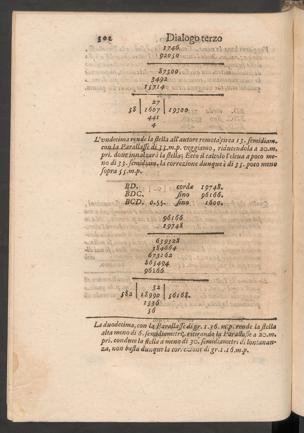 302 Dialogo terzo
1746
92050
87300
3492
15714
27
58 | 1607 | 19300.
441
4
L'undecima rende la stella all'autore remota circa 13. semidiam.
con la Parallasse di 55. m.p. veggiamo, riducendola a 20. m.
pri. dove innalzerà la stella; Ecco il calcolo l'eleva a poco me-
no di 33. semidiam. la correzione dunque è di 35. poco meno
sopra 55. m.p.
BD. corda 19748.
BDC. sino 96166.
BCD. 0.35. sino 1600.
96166
19748
769328
384664
673162
865494
96166
32
582 | 18990 | 56168.
1536
36
La duodecima, con la Parallasse di gr. 1. 36. m.p. rende la stella
alta meno di 6. semidiametri, tirando la Parallasse a 20. m.
pri. conduce la stella a meno di 30. semidiametri di lontanan-
za, non basta dunque la correzione di gr. 1. 16. m.p.